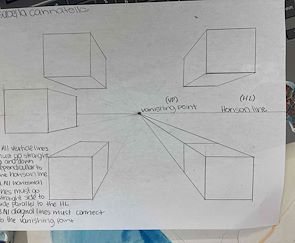 cannatello
(VP)
vanishing point
(HL)
Horison line
All verticle lines
must go straight
up and down
perpendicular to
the horison line
All horisontal
lines must go
straight side to
side parallel to the HL
All diagnol lines must connect
to the vanishing point